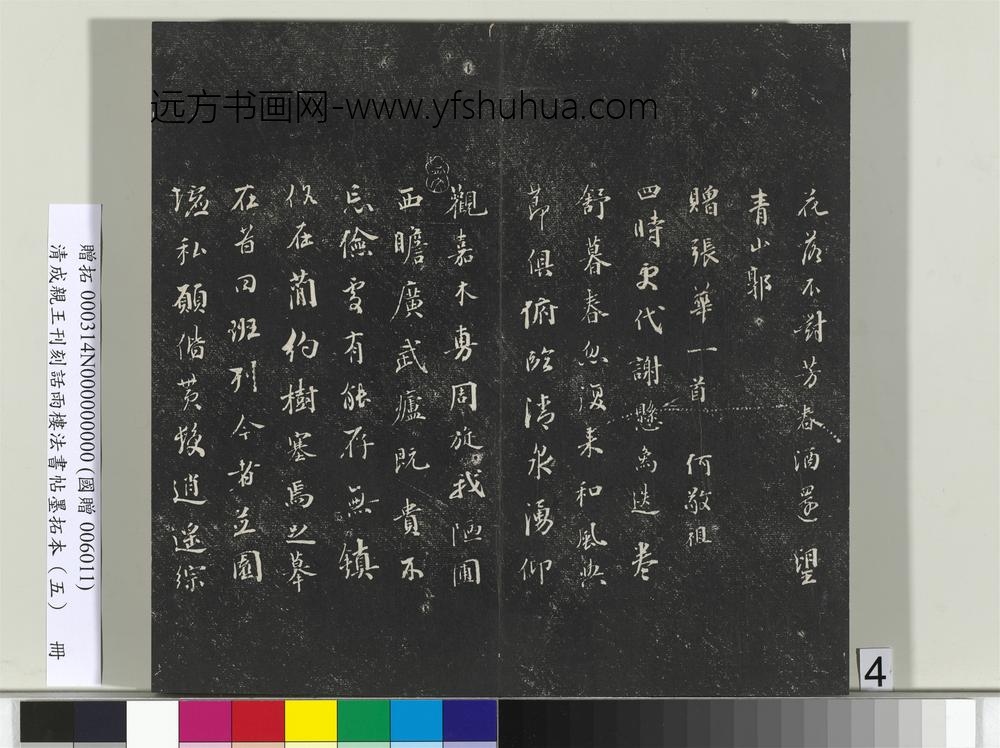 远方书画网-www.yfshuhua.com
花落不對芳春酒還望
青山郭
贈張華一首 何敬祖
四時更代謝懸象迭卷
舒暮春忽復来和風與
節俱俯臨清泉湧仰
觀嘉木敷周旋我陋圃
西瞻廣武廬既貴不
忘儉處有能存無鎮
俗在簡約樹塞焉足摹
在昔同班列今者並園
墟私願偕黄髮逍遥綜
贈拓 000314N000000000 (國贈 006011)
清成親王刊刻話雨樓法書帖墨拓本（五） 冊
4